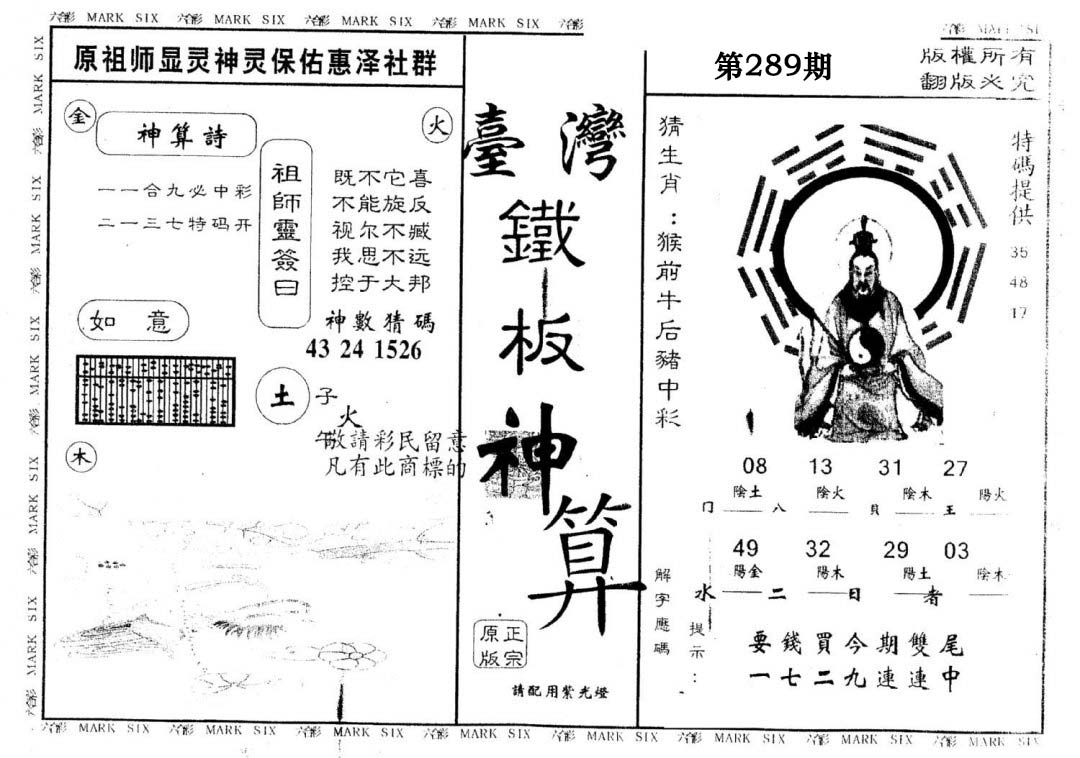 六彩 MARK SIX 六彩 MARK SIX 六彩 MARK SIX 六彩 MARK SIX 六彩
原祖师显灵神灵保佑惠泽社群
金
神算詩
火
一一合九必中彩
二一三七特码开
祖師靈簽曰
既不它喜
不能旋反
视尔不臧
我思不远
控于大邦
神數猜碼
43 24 1526
如意
土
子
火
午
敬請彩民留意
凡有此商標的
木
臺灣
鐵板神算
正宗
原版
請配用紫光燈
第289期
版權所有
翻版必究
猜生肖：猴前牛后豬中彩
特碼提供
35
48
17
08 13 31 27
陰土 陰火 陰木 陽火
门 八 貝 王
49 32 29 03
陽金 陽木 陽土 陰木
水 二 日 者
解字應碼
提示：
要錢買今期雙尾
一七二九連連中
六彩 MARK SIX 六彩 MARK SIX 六彩 MARK SIX 六彩 MARK SIX 六彩 MARK SIX 六彩 MARK SIX 六彩 MARK SIX 六彩 MARK SIX